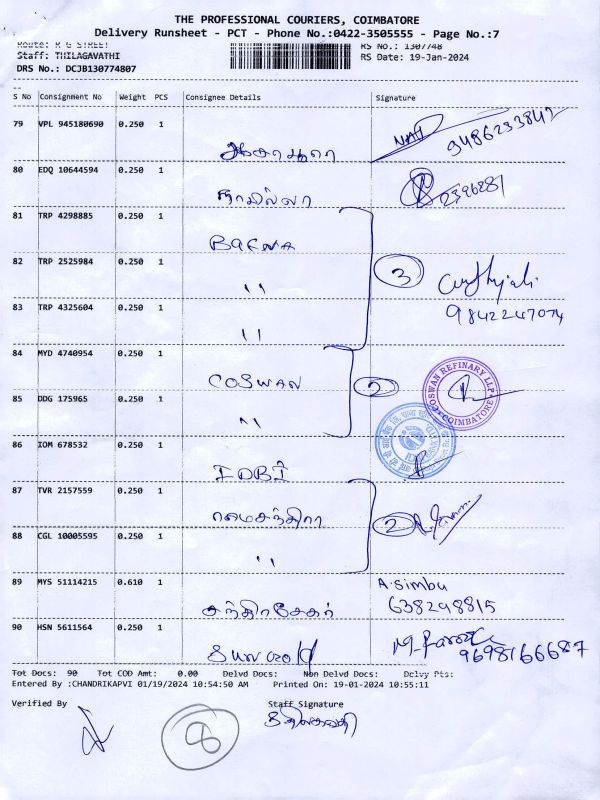 THE PROFESSIONAL COURIERS, COIMBATORE
Delivery Runsheet - PCT - Phone No.:0422-3505555 - Page No.:7
Route: R G STREET RS No.: 1307748
Staff: THILAGAVATHI RS Date: 19-Jan-2024
DRS No.: DCJB130774807
S No Consignment No Weight PCS Consignee Details Signature
79 VPL 945180690 0.250 1 9486233842
80 EDQ 10644594 0.250 1 2396281
81 TRP 4298885 0.250 1 BAFNA
82 TRP 2525984 0.250 1 " 3
83 TRP 4325604 0.250 1 " 9842247074
84 MYD 4740954 0.250 1 COSWAN 2 COSWAN REFINARY LLP COIMBATORE
85 DDG 175965 0.250 1 "
86 IOM 678532 0.250 1 IDBI
87 TVR 2157559 0.250 1 ராமச்சந்திரா 2
88 CGL 10005595 0.250 1 "
89 MYS 51114215 0.610 1 சந்திரசேகர் A.Simbu 638298815
90 HSN 5611564 0.250 1 Sun Gold 9698166687
Tot Docs: 90 Tot COD Amt: 0.00 Delvd Docs: Non Delvd Docs: Dclvy Pts:
Entered By :CHANDRIKAPVI 01/19/2024 10:54:50 AM Printed On: 19-01-2024 10:55:11
Verified By Staff Signature
8